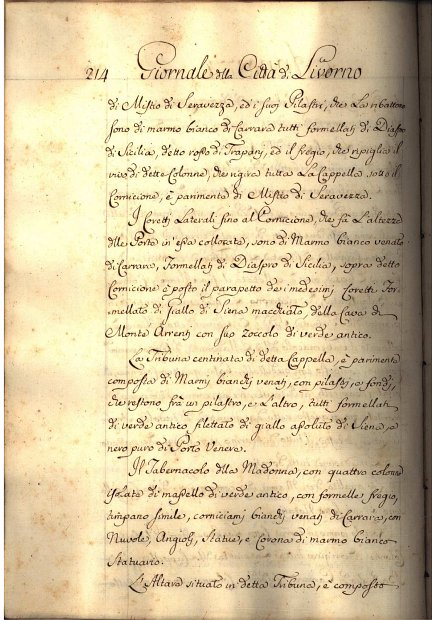 214 Giornale della Città di Livorno
di Mistio di Seravezza, ed i suoi Pilastri, che La ribattono
sono di marmo bianco di Carrara tutti formellati di Diaspro
di Sicilia, detto rosso di Trapani, ed il fregio, che ripiglia il
vivo di dette Colonne, che rigira tutta La Cappella sotto il
Cornicione, è parimente di Mistio di Seravezza.
I Coretti Laterali fino al Cornicione, che fà L'altezza
delle Porte in essa collocate, sono di Marmo bianco venato
di Carrara, Formellati di Diaspro di Sicilia, sopra detto
Cornicione è posto il parapetto dei medesimi Coretti For-
mellato di Giallo di Siena macchiato, della Cava di
Monte Arrenti con suo zoccolo di verde antico.
La Tribuna centinata di detta Cappella, è parimente
composta di Marmi bianchi venati, con pilastri, e fondi,
che restono frà un pilastro, e L'altro, tutti formellati
di verde antico filettato di giallo assoluto di Siena, e
nero puro di Porto Venere.
Il Tabernacolo della Madonna, con quattro colonne
isolate di massello di verde antico, con formelle, fregio,
timpano simile, corniciami bianchi venati di Carrara, con
Nuvole, Angioli, Statue, e Corona di marmo bianco
Statuario.
L'Altare situato in detta Tribuna, è composto